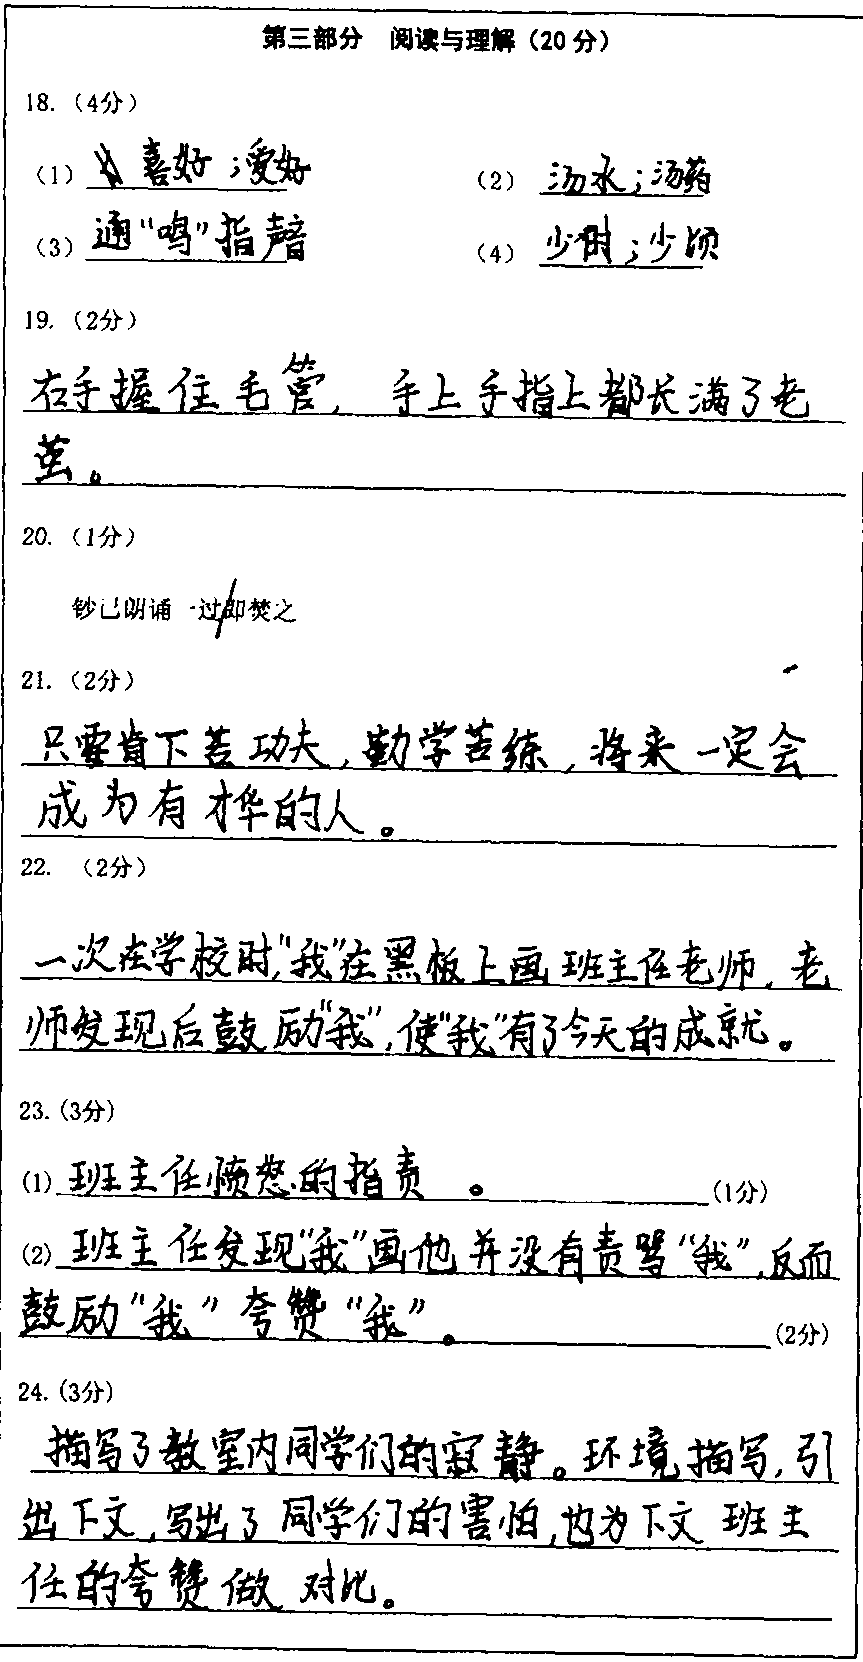 第三部分 阅读与理解（20分）
18.（4分）
（1）喜好；爱好
（2）汤水；汤药
（3）通“鸣”指声音
（4）少时；少顷
19.（2分）
右手握住毛管，手上手指上都长满了老
茧。
20.（1分）
钞已朗诵一过/即焚之
21.（2分）
只要肯下苦功夫，勤学苦练，将来一定会
成为有才华的人。
22.（2分）
一次在学校时，“我”在黑板上画班主任老师，老
师发现后鼓励“我”，使“我”有了今天的成就。
23.(3分)
(1)班主任愤怒的指责。(1分)
(2)班主任发现“我”画他并没有责骂“我”，反而
鼓励“我”夸赞“我”。(2分)
24.(3分)
描写了教室内同学们的寂静。环境描写，引
出下文，写出了同学们的害怕，也为下文班主
任的夸赞做对比。